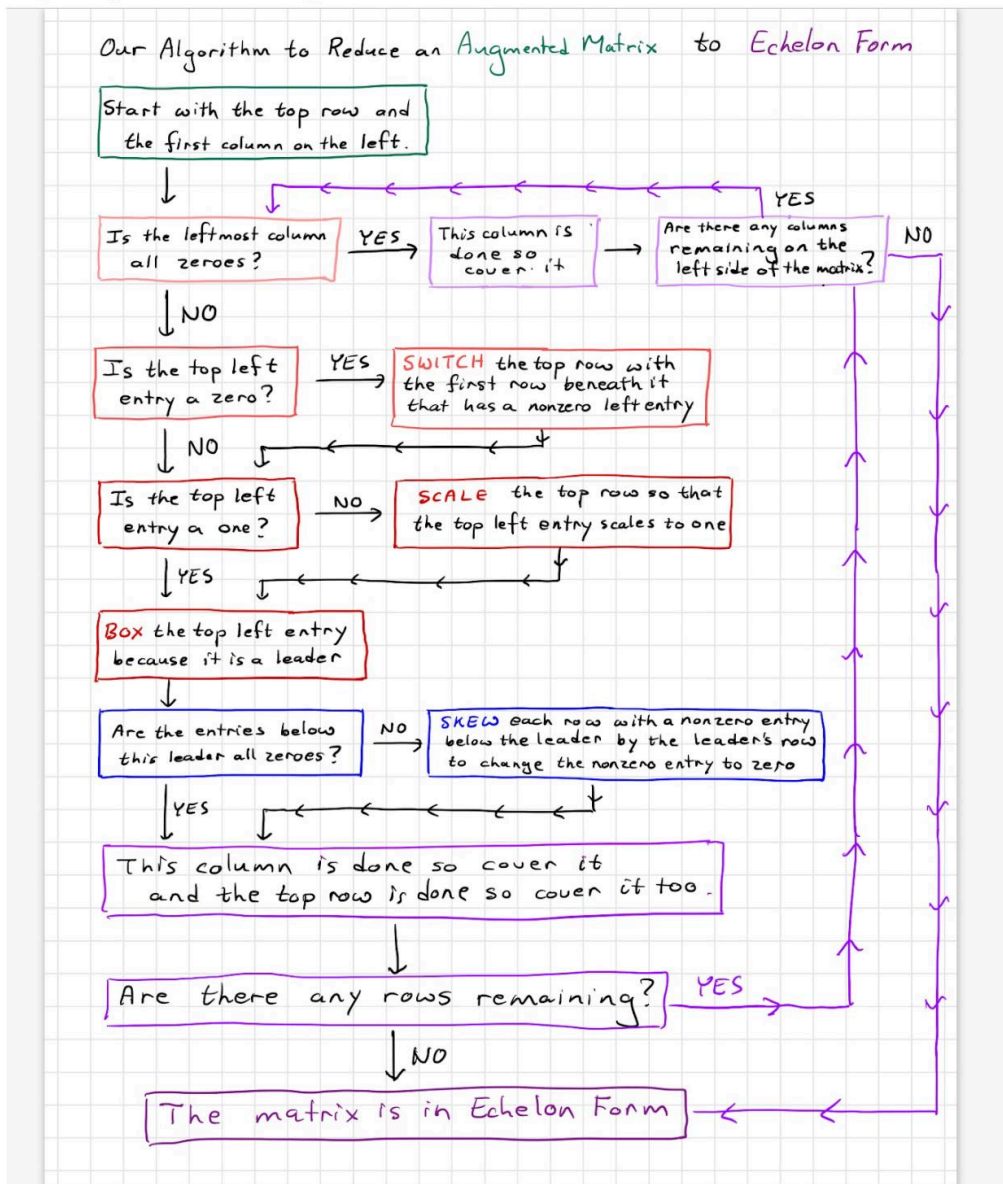 Our Algorithm to Reduce an Augmented Matrix to Echelon Form
Start with the top row and
the first column on the left.
YES
Is the leftmost column
all zeroes?
YES
This column is
done so
cover it
Are there any columns
remaining on the
left side of the matrix?
NO
NO
Is the top left
entry a zero?
YES
SWITCH the top row with
the first row beneath it
that has a nonzero left entry
NO
Is the top left
entry a one?
NO
SCALE the top row so that
the top left entry scales to one
YES
Box the top left entry
because it is a leader
Are the entries below
this leader all zeroes?
NO
SKEW each row with a nonzero entry
below the leader by the leader's row
to change the nonzero entry to zero
YES
This column is done so cover it
and the top row is done so cover it too.
Are there any rows remaining?
YES
NO
The matrix is in Echelon Form